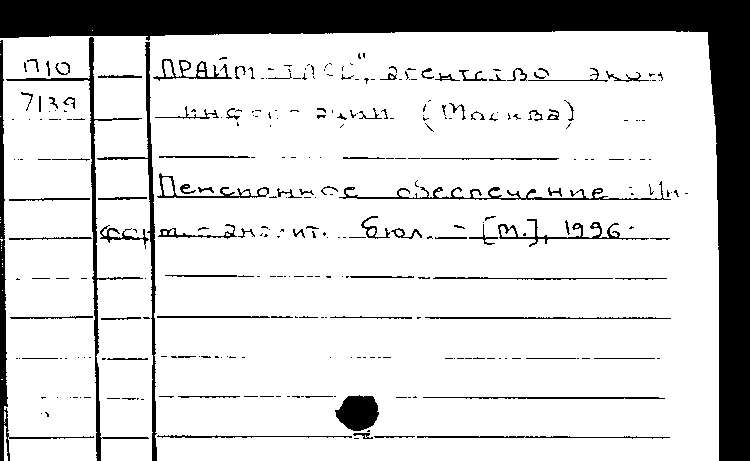 П10 ПРАЙМ-ТАСС", агентство экон
7139 информации (Москва)
Пенсионное обеспечение : Ин-
форм.-аналит. бюл. - [М.], 1996-